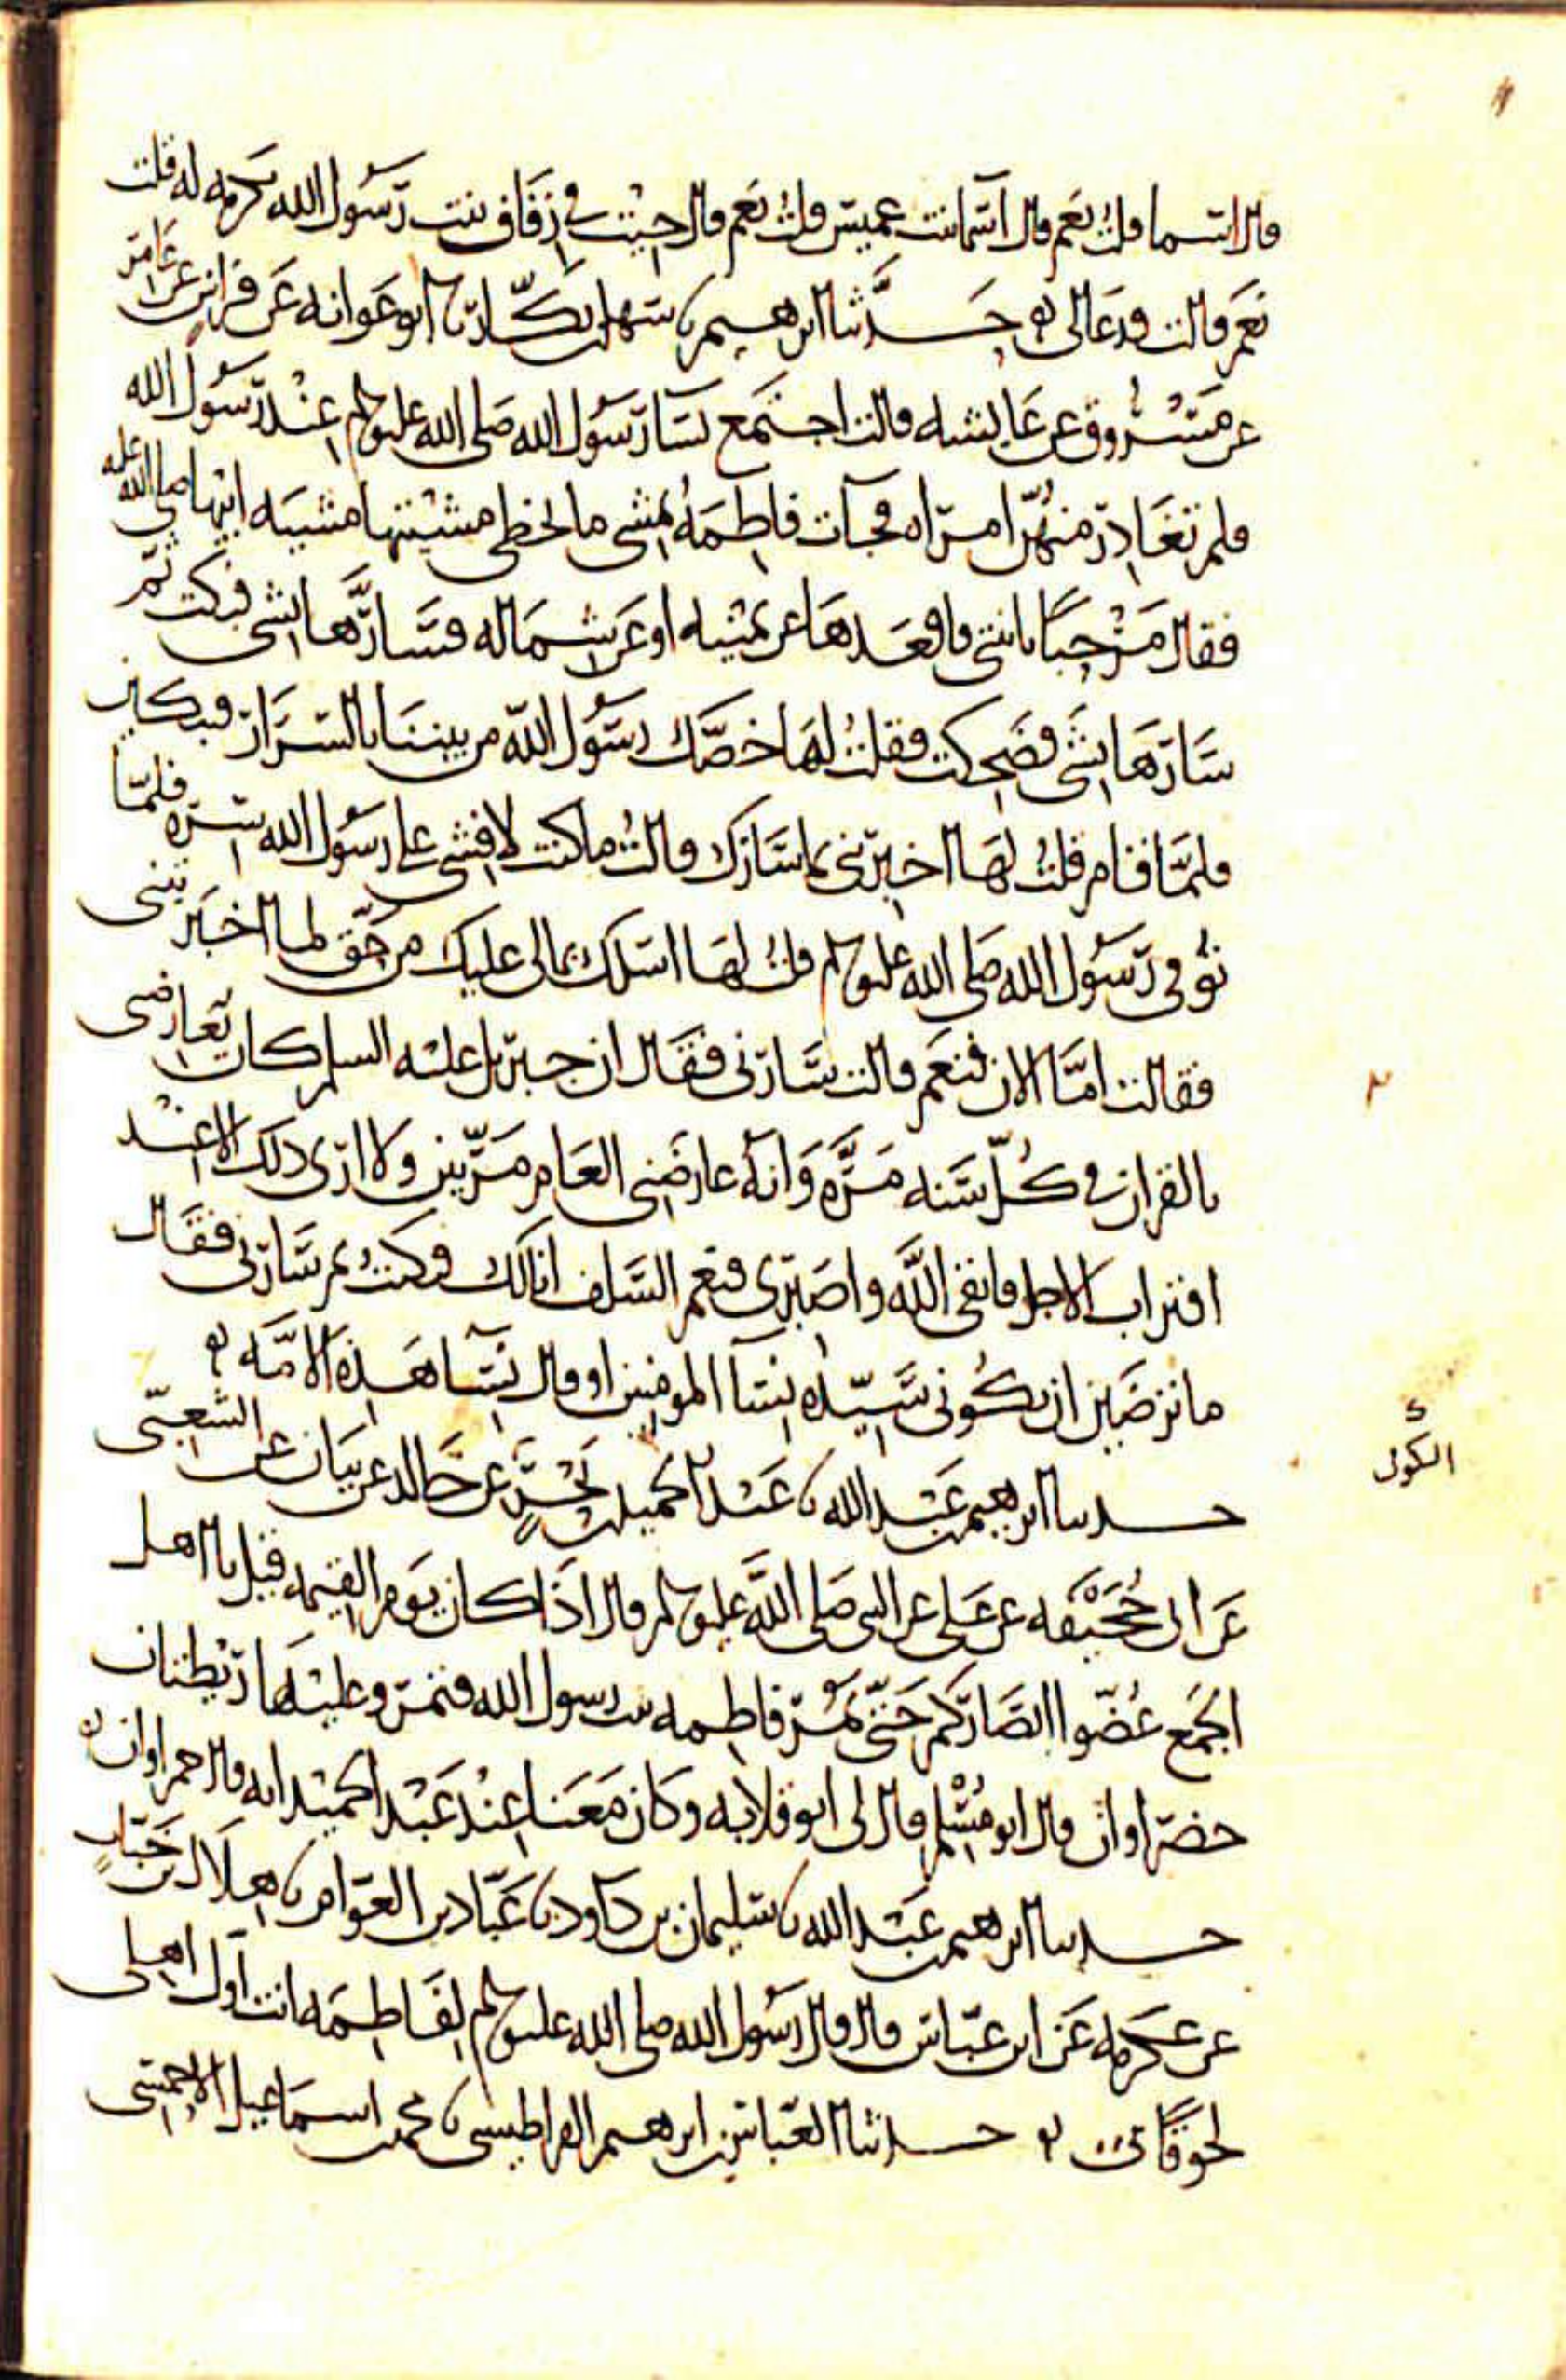 قال اسما قلت نعم قال اسما بنت عميس قلت نعم قال جيت في زفاف بنت رسول الله تكرمه له قلت
نعم قالت فدعا لي حدثنا ابرهيم نا سهل بن بكار نا ابو عوانه عن فراس عن عامر
عن مسروق عن عايشه قالت اجتمع نسا رسول الله صلى الله عليه وسلم عند رسول الله
فلم تغادر منهن امراه فجات فاطمه تمشي ما تخطي مشيتها مشيه ابيها صلى الله عليه
فقال مرحبا بابنتي فاقعدها عن يمينه او عن شماله فسارها بشي فبكت ثم
سارها بشي فضحكت فقلت لها خصك رسول الله من بيننا بالسرار فتبكين
فلما قام قلت لها اخبرني بما سارك قالت ما كنت لافشي على رسول الله سره فلما
توفي رسول الله صلى الله عليه وسلم قلت لها اسلك بما لي عليك من حق لما اخبرتيني
فقالت اما الان فنعم قالت سارني فقال ان جبريل عليه السلم كان يعارضني
بالقران في كل سنه مره وانه عارضني العام مرتين ولا ارى ذلك الا عند
اقتراب الاجل فاتقي الله واصبري فنعم السلف انا لك فبكت ثم سارني فقال
ما ترضين ان تكوني سيده نسا المومنين او قال نسا هذه الامه
حدثنا ابرهيم بن عبد الله نا عبد الحميد بن بحر عن خالد عن بيان عن الشعبي
الكوفي
عن ابي جحيفه عن علي عن النبي صلى الله عليه وسلم قال اذا كان يوم القيمه قيل يا اهل
الجمع غضوا ابصاركم حتى تمر فاطمه بنت رسول الله فتمر وعليها ريطتان
خضراوان قال ابو مسلم قال لي ابو قلابه وكان معنا عند عبد الحميد انه قال حمراوان
حدثنا ابرهيم بن عبد الله نا سليمان بن داود نا عباد بن العوام نا هلال بن خباب
عن عكرمه عن ابن عباس قال قال رسول الله صلى الله عليه وسلم لفاطمه انت اول اهلي
لحوقا بي حدثنا العباس بن ابرهيم القراطيسي نا محمد بن اسماعيل الاحمسي